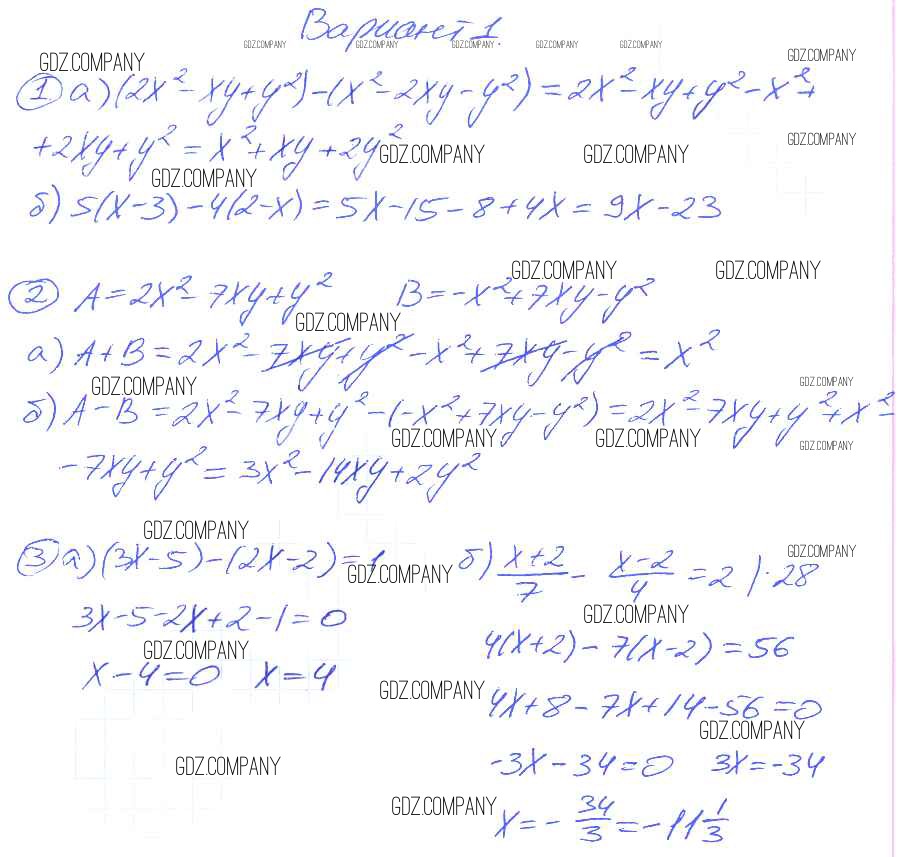 Вариант 1.
GDZ.COMPANY GDZ.COMPANY GDZ.COMPANY GDZ.COMPANY GDZ.COMPANY
GDZ.COMPANY GDZ.COMPANY
① а) (2x² - xy + y²) - (x² - 2xy - y²) = 2x² - xy + y² - x² +
GDZ.COMPANY
+ 2xy + y² = x² + xy + 2y²
GDZ.COMPANY GDZ.COMPANY
GDZ.COMPANY
б) 5(x - 3) - 4(2 - x) = 5x - 15 - 8 + 4x = 9x - 23
GDZ.COMPANY GDZ.COMPANY
② A = 2x² - 7xy + y² B = -x² + 7xy - y²
GDZ.COMPANY
а) A + B = 2x² - 7xy + y² - x² + 7xy - y² = x²
GDZ.COMPANY GDZ.COMPANY
б) A - B = 2x² - 7xy + y² - (-x² + 7xy - y²) = 2x² - 7xy + y² + x² -
GDZ.COMPANY GDZ.COMPANY GDZ.COMPANY
- 7xy + y² = 3x² - 14xy + 2y²
GDZ.COMPANY GDZ.COMPANY
③ а) (3x - 5) - (2x - 2) = 1 б) (x + 2)/7 - (x - 2)/4 = 2 | · 28
GDZ.COMPANY
GDZ.COMPANY
3x - 5 - 2x + 2 - 1 = 0
4(x + 2) - 7(x - 2) = 56
GDZ.COMPANY
x - 4 = 0 x = 4
GDZ.COMPANY
4x + 8 - 7x + 14 - 56 = 0
GDZ.COMPANY
GDZ.COMPANY
-3x - 34 = 0 3x = -34
GDZ.COMPANY
x = - 34/3 = -11 1/3